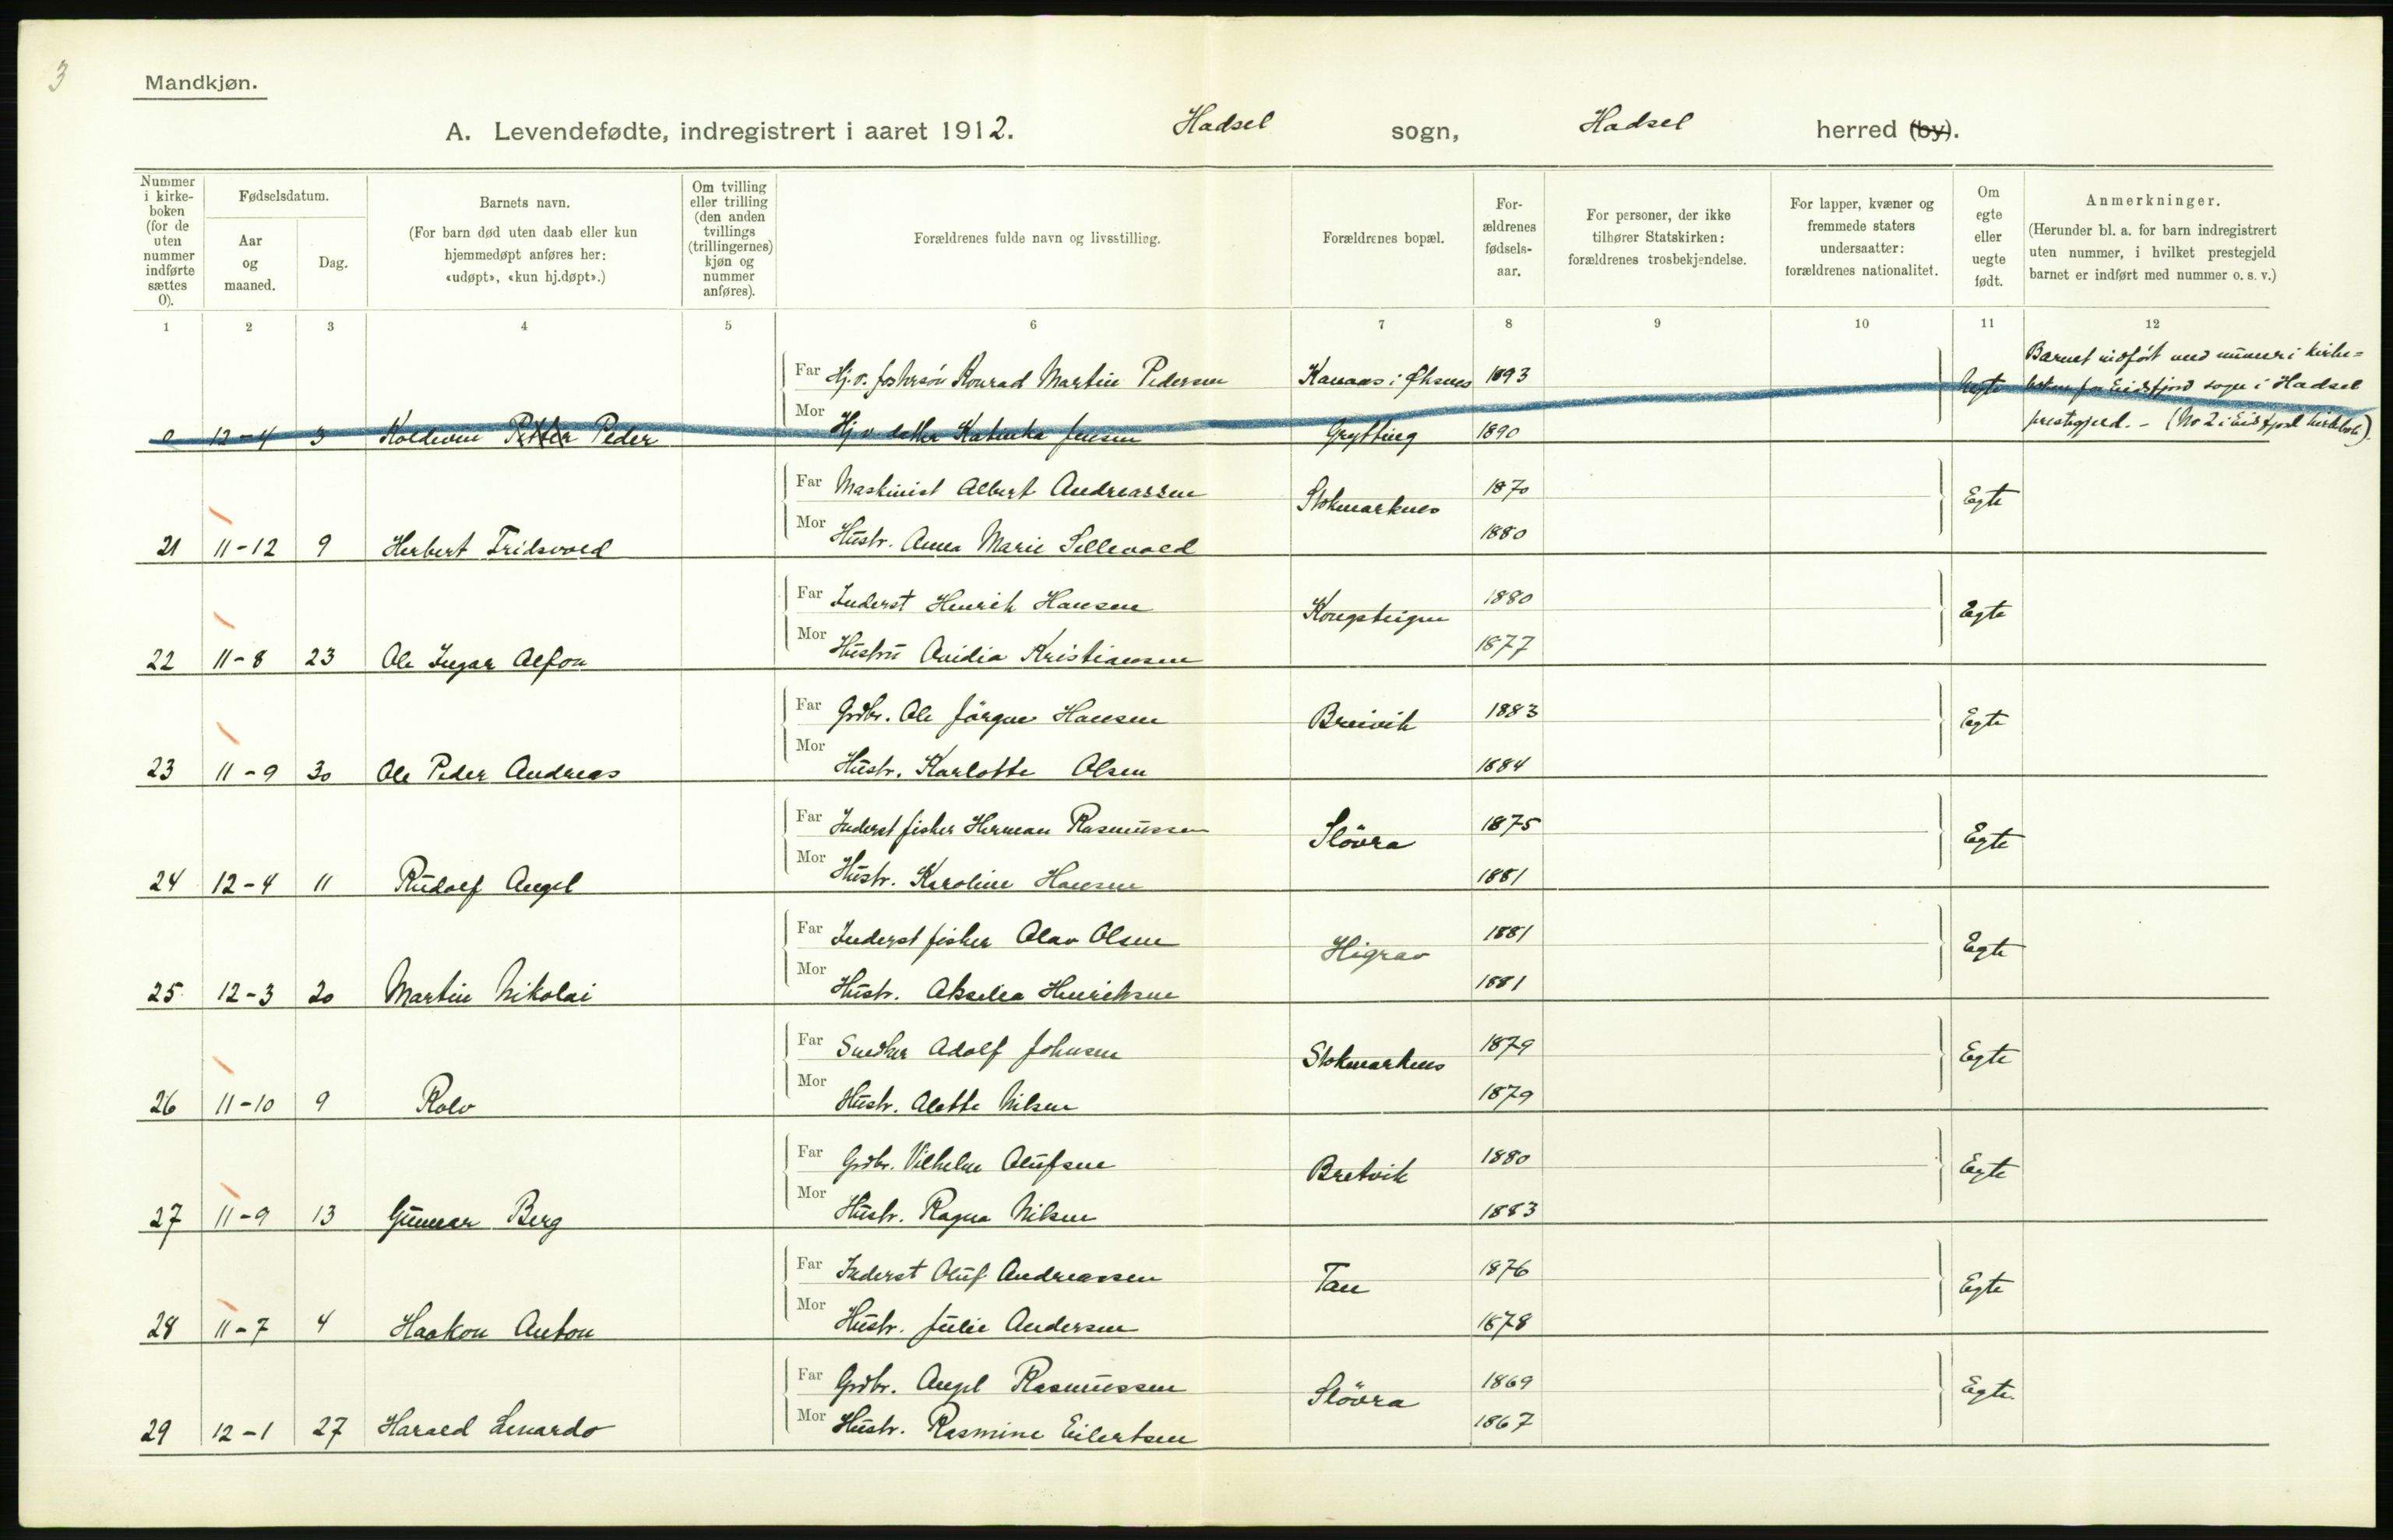 3
Mandkjøn.
A. Levendefødte, indregistrert i aaret 1912. Hadsel sogn, Hadsel herred (by).
Nummer i kirkeboken (for de uten nummer indførte sættes 0).
Fødselsdatum.
Aar og maaned.
Dag.
Barnets navn.
(For barn død uten daab eller kun hjemmedøpt anføres her: «udøpt», «kun hj.døpt».)
Om tvilling eller trilling (den anden tvillings (trillingernes) kjøn og nummer anføres).
Forældrenes fulde navn og livsstilling.
Forældrenes bopæl.
Forældrenes fødselsaar.
For personer, der ikke tilhører Statskirken: forældrenes trosbekjendelse.
For lapper, kvæner og fremmede staters undersaatter: forældrenes nationalitet.
Om egte eller uegte født.
Anmerkninger.
(Herunder bl. a. for barn indregistrert uten nummer, i hvilket prestegjeld barnet er indført med nummer o. s. v.)
1 2 3 4 5 6 7 8 9 10 11 12
Far Hj.v. fostersøn Konrad Martin Pedersen Kanaas i Øksnes 1893 Uegte Barnet indført med numer i kirke=
boken for Eidsfjord sogn i Hadsel
prestegjeld. - (No 2 i Eidsfjord kirkebok).
0 12-4 3 Koldevin Petter Peder Mor Hj.v. datter Katinka Jensen Grytting 1890
Far Maskinist Albert Andreassen Stokmarknes 1870 Egte
21 11-12 9 Herbert Fridsvold Mor Hustr. Anna Marie Sellevold 1880
Far Inderst Henrik Hansen Kongsteigen 1880 Egte
22 11-8 23 Ole Ingar Alfon Mor Hustru Ovidia Kristiansen 1877
Far Grdbr. Ole Jörgen Hansen Breivik 1883 Egte
23 11-9 30 Ole Peder Andreas Mor Hustr. Karlotte Olsen 1884
Far Inderst fisker Herman Rasmussen Slövra 1875 Egte
24 12-4 11 Rudolf Angel Mor Hustr. Karoline Hansen 1881
Far Inderst fisker Olav Olsen Higrav 1881 Egte
25 12-3 20 Martin Nikolai Mor Hustr. Akselia Henriksen 1881
Far Snedker Adolf Johnsen Stokmarknes 1879 Egte
26 11-10 9 Rolv Mor Hustr. Alette Nilsen 1879
Far Grdbr. Vilhelm Olufsen Bretvik 1880 Egte
27 11-9 13 Gunnar Berg Mor Hustr. Ragna Nilsen 1883
Far Inderst Oluf Andreassen Tan 1876 Egte
28 11-7 4 Haakon Anton Mor Hustr. Julie Andersen 1878
Far Grdbr. Angel Rasmussen Slövra 1869 Egte
29 12-1 27 Harald Lenardo Mor Hustr. Rasmine Eilertsen 1867